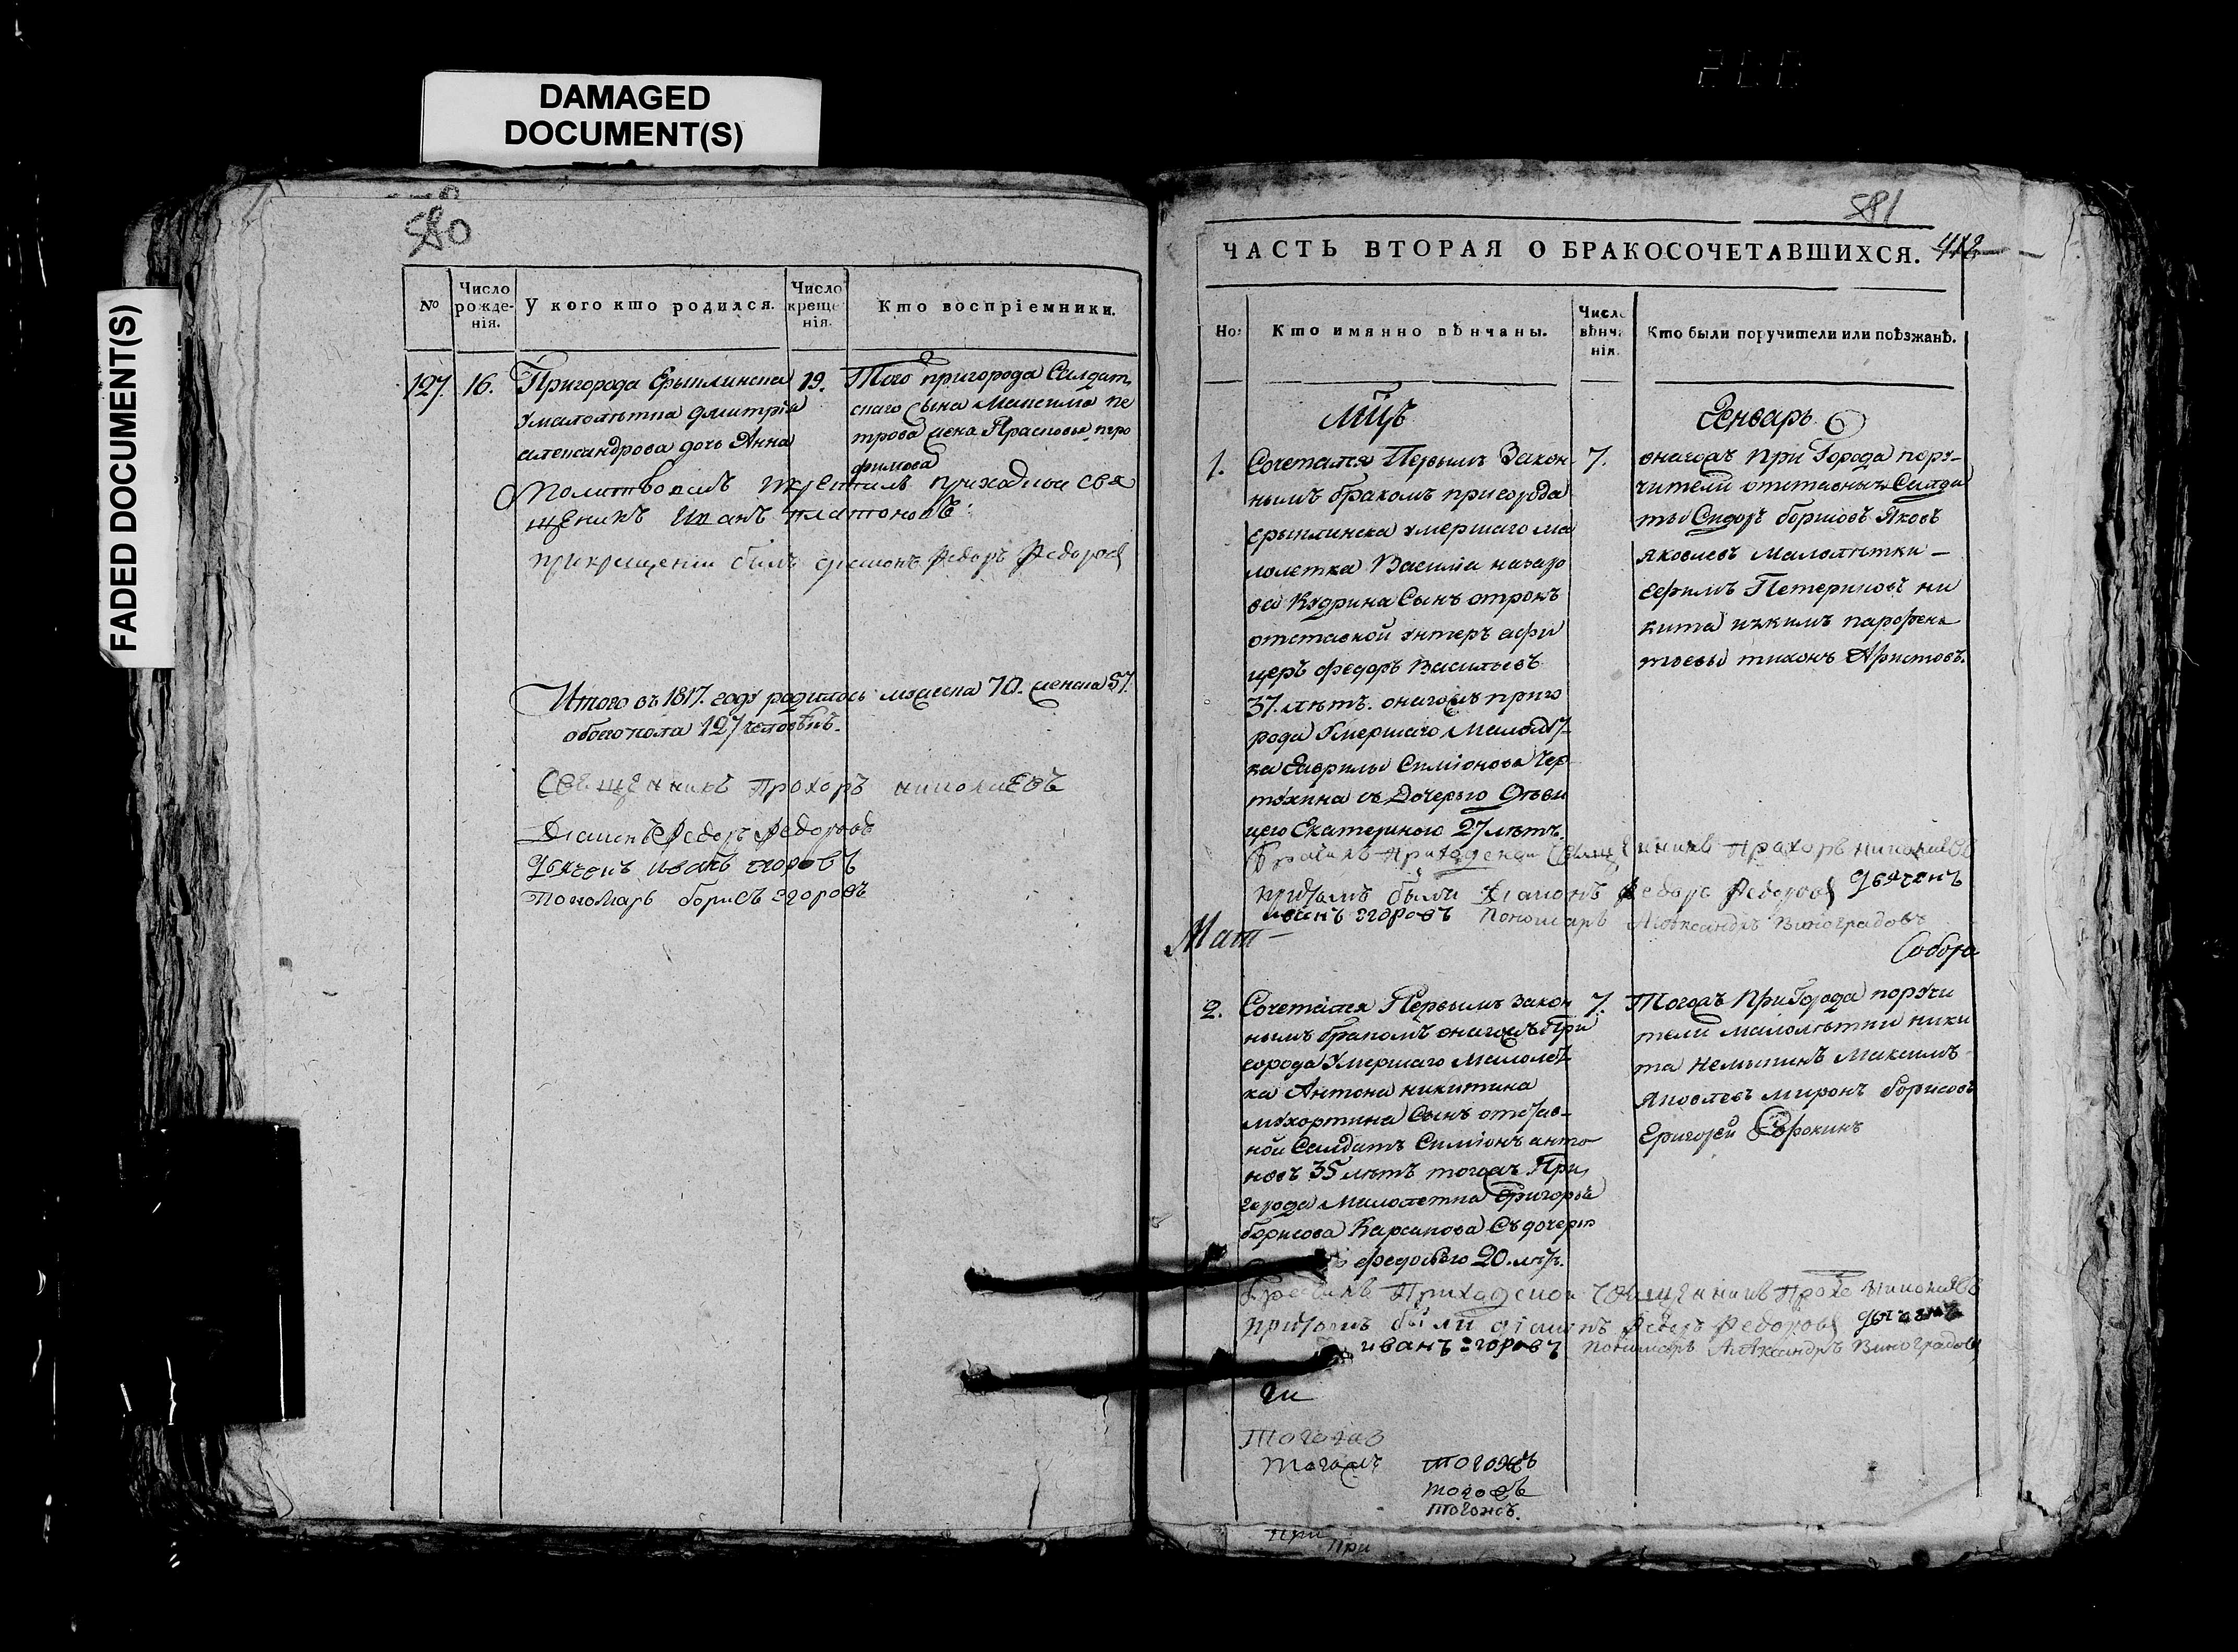 DAMAGED
DOCUMENT(S)
FADED DOCUMENT(S)
580
№
Число рожденія.
У кого кто родился.
Число крещенія.
Кто воспріемники.
127.
16.
Пригорода Ерыклинска
умалолѣтка Дмитрія
александрова дочь Анна
19.
Того пригорода Салдат
скаго сына Максима пе
трова жена Прасковья тро
фимова
Молитвовалъ и крестилъ приходской свя
щеникъ Иванъ платоновъ
при крещении былъ дияконъ Федоръ Федоровъ
Итого въ 1817. году родилось мужеска 70. женска 57.
обоего пола 127 человѣкъ.
Священникъ Прохоръ николаевъ
Диаконъ Федоръ Федоровъ
Дьячекъ иванъ егоровъ
Пономарь борисъ егоровъ
581
ЧАСТЬ ВТОРАЯ О БРАКОСОЧЕТАВШИХСЯ. 412
Но:
Кто имянно вѣнчаны.
Число вѣнчанія.
Кто были поручители или поѣзжанѣ.
Мцъ
Генварь
1.
Сочетался Первымъ Закон
нымъ бракомъ пригорода
ерыклинска умершаго ма
лолетка Василіа назаро
ва Кудрина Сынъ отрокъ
отставной унтеръ афи
церъ федоръ Васильевъ
37. лѣтъ. онагожъ приго
рода Умершаго Малолѣт
ка Гаврилы Симіонова Чер
тухина съ Дочерью Дѣви
цею Екатериною 27 лѣтъ.
7.
онагожъ При Города пору-
чители отставныя Салда
ты Сидоръ борисовъ Яковъ
яковлевъ Малолѣтки
Ефимъ Петериковъ ни
кита икимъ парфень
тьевы тихонъ Аристовъ.
Бракъ Приходской Священникъ Прахоръ николаевъ
притомъ были Диаконъ Федоръ Федоровъ Дьячекъ
иванъ егоровъ пономарь Александръ Виноградовъ
Мат
Собора
2.
Сочетался Первымъ закон
нымъ бракомъ онагожъ При
города Умершаго Малолѣт
ка Антона никитина
мухортина Сынъ отстав-
ной Салдатъ Симіонъ анто
новъ 35 лѣтъ тогожъ При
города Малолетка Григорья
борисова Карсакова Съ дочерью
федосьею 20. лѣтъ.
7.
Тогожъ При Города поручи
тели малолѣтки ники
та Немыкинъ Максимъ
Яковлевъ миронъ борисовъ
Григорей Сорокинъ
Приходской Священникъ Николаевъ
притомъ были диаконъ Федоръ Федоровъ дьячекъ
иванъ егоровъ пономарь Александръ Виноградовъ
Тогожъ
тогожъ тогожъ
тогожъ
тогожъ.
при
При